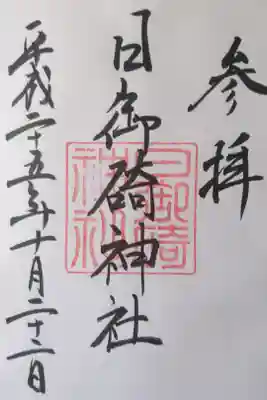 参拝
日御碕神社
平成二十五年十月二十二日
日御碕
神社